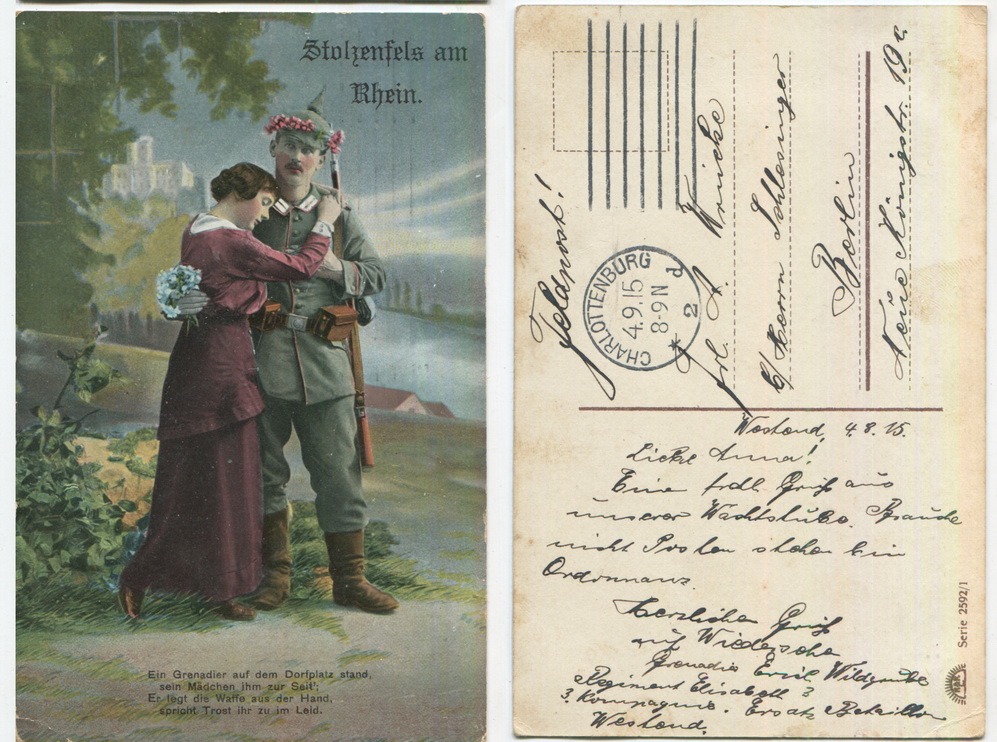 Stolzenfels am
Rhein.
Ein Grenadier auf dem Dorfplatz stand,
sein Mädchen ihm zur Seit';
Er legt die Waffe aus der Hand,
spricht Trost ihr zu im Leid.
Feldpost!
CHARLOTTENBURG
4.9.15
8-9N
* 2 d
Frl. A. Wricke
C/ Herrn Schlesinger
Berlin
Neue Königstr. 19c
Westend, 4.8.15.
Liebe Anna!
Eine frdl. Gruß aus
unserer Wachtstube. Brauche
nicht Posten stehen bin
Ordonnanz
Herzlichen Gruß
auf Wiedersehn
Grenadier Emil
Regiment Elisabeth 3
3 Kompagnie. Ersatz Bataillon
Westend.
Serie 2592/1